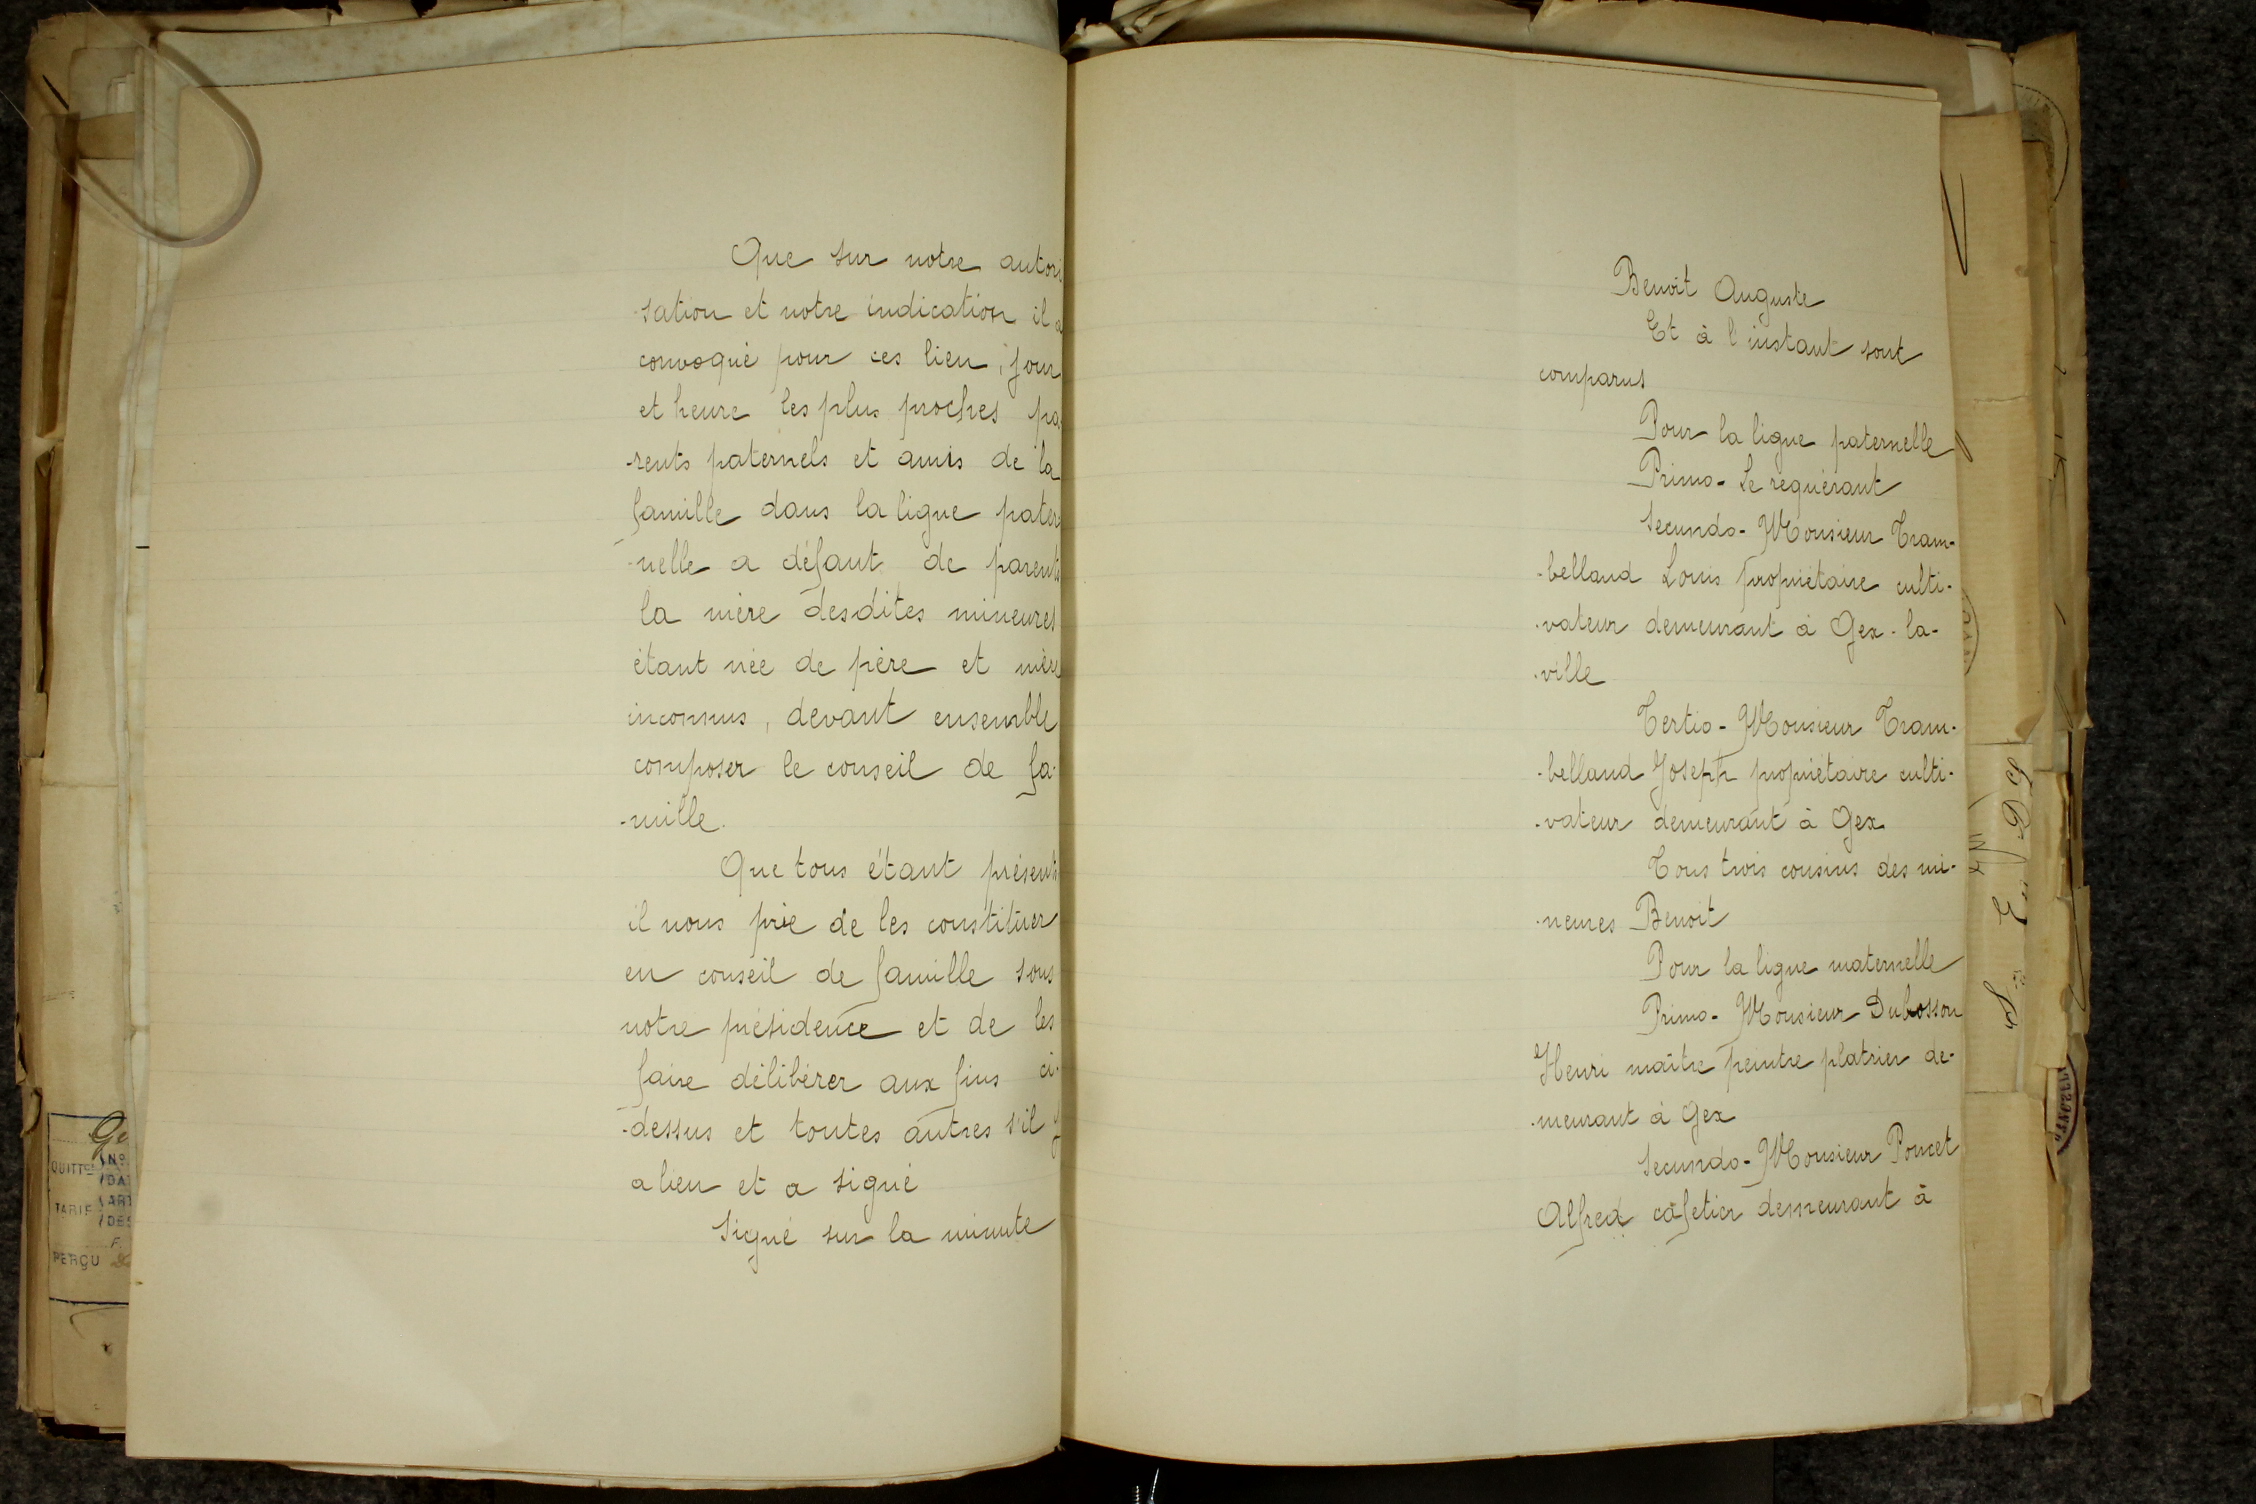 Que sur notre autori
sation et notre indication il a
convoqué pour ces lieu, jour
et heure les plus proches pa
-rents paternels et amis de la
famille dans la ligne pater
-nelle a défaut de parents
la mère desdites mineures
étant née de père et mère
inconnus, devant ensemble
composer le conseil de fa-
-mille.
Que tous étant présents
il nous prie de les constituer
en conseil de famille sous
notre présidence et de les
faire délibérer aux fins ci-
-dessus et toutes autres s'il y
a lieu et a signé
Signé sur la minute
Benoit Auguste
Et à l'instant sont
comparus
Pour la ligne paternelle
Primo - Le requérant
Secundo - Monsieur Tram-
-belland Louis propriétaire culti-
-vateur demeurant à Gex-la-
-ville
Tertio - Monsieur Tram-
-belland Joseph propriétaire culti-
-vateur demeurant à Gex
Tous trois cousins des mi-
-neures Benoit
Pour la ligne maternelle
Primo - Monsieur Dubosson
Henri maître peintre platrier de-
-meurant à Gex
Secundo - Monsieur Poncet
Alfred cafetier demeurant à
QUITTce
No
TARIF
ART
PERÇU
F.